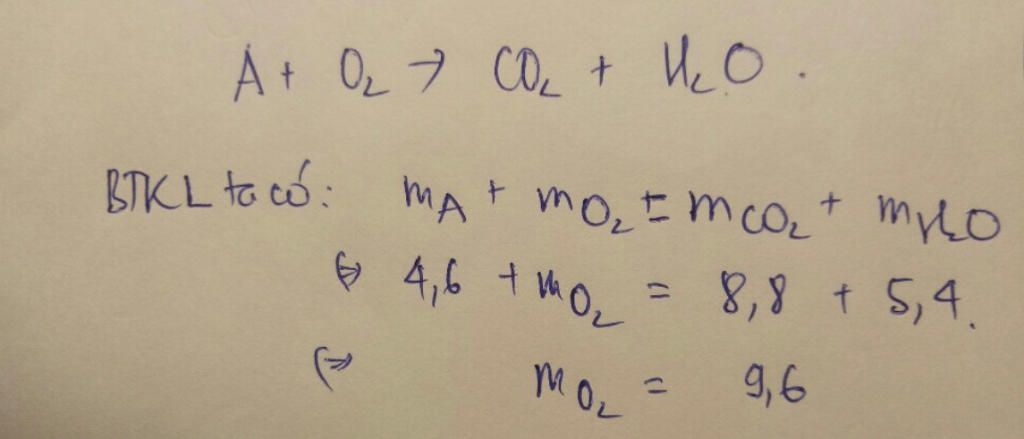 A + O₂ → CO₂ + H₂O.
BTKL ta có: mA + mO₂ = mCO₂ + mH₂O
⇔ 4,6 + mO₂ = 8,8 + 5,4.
⇔ mO₂ = 9,6